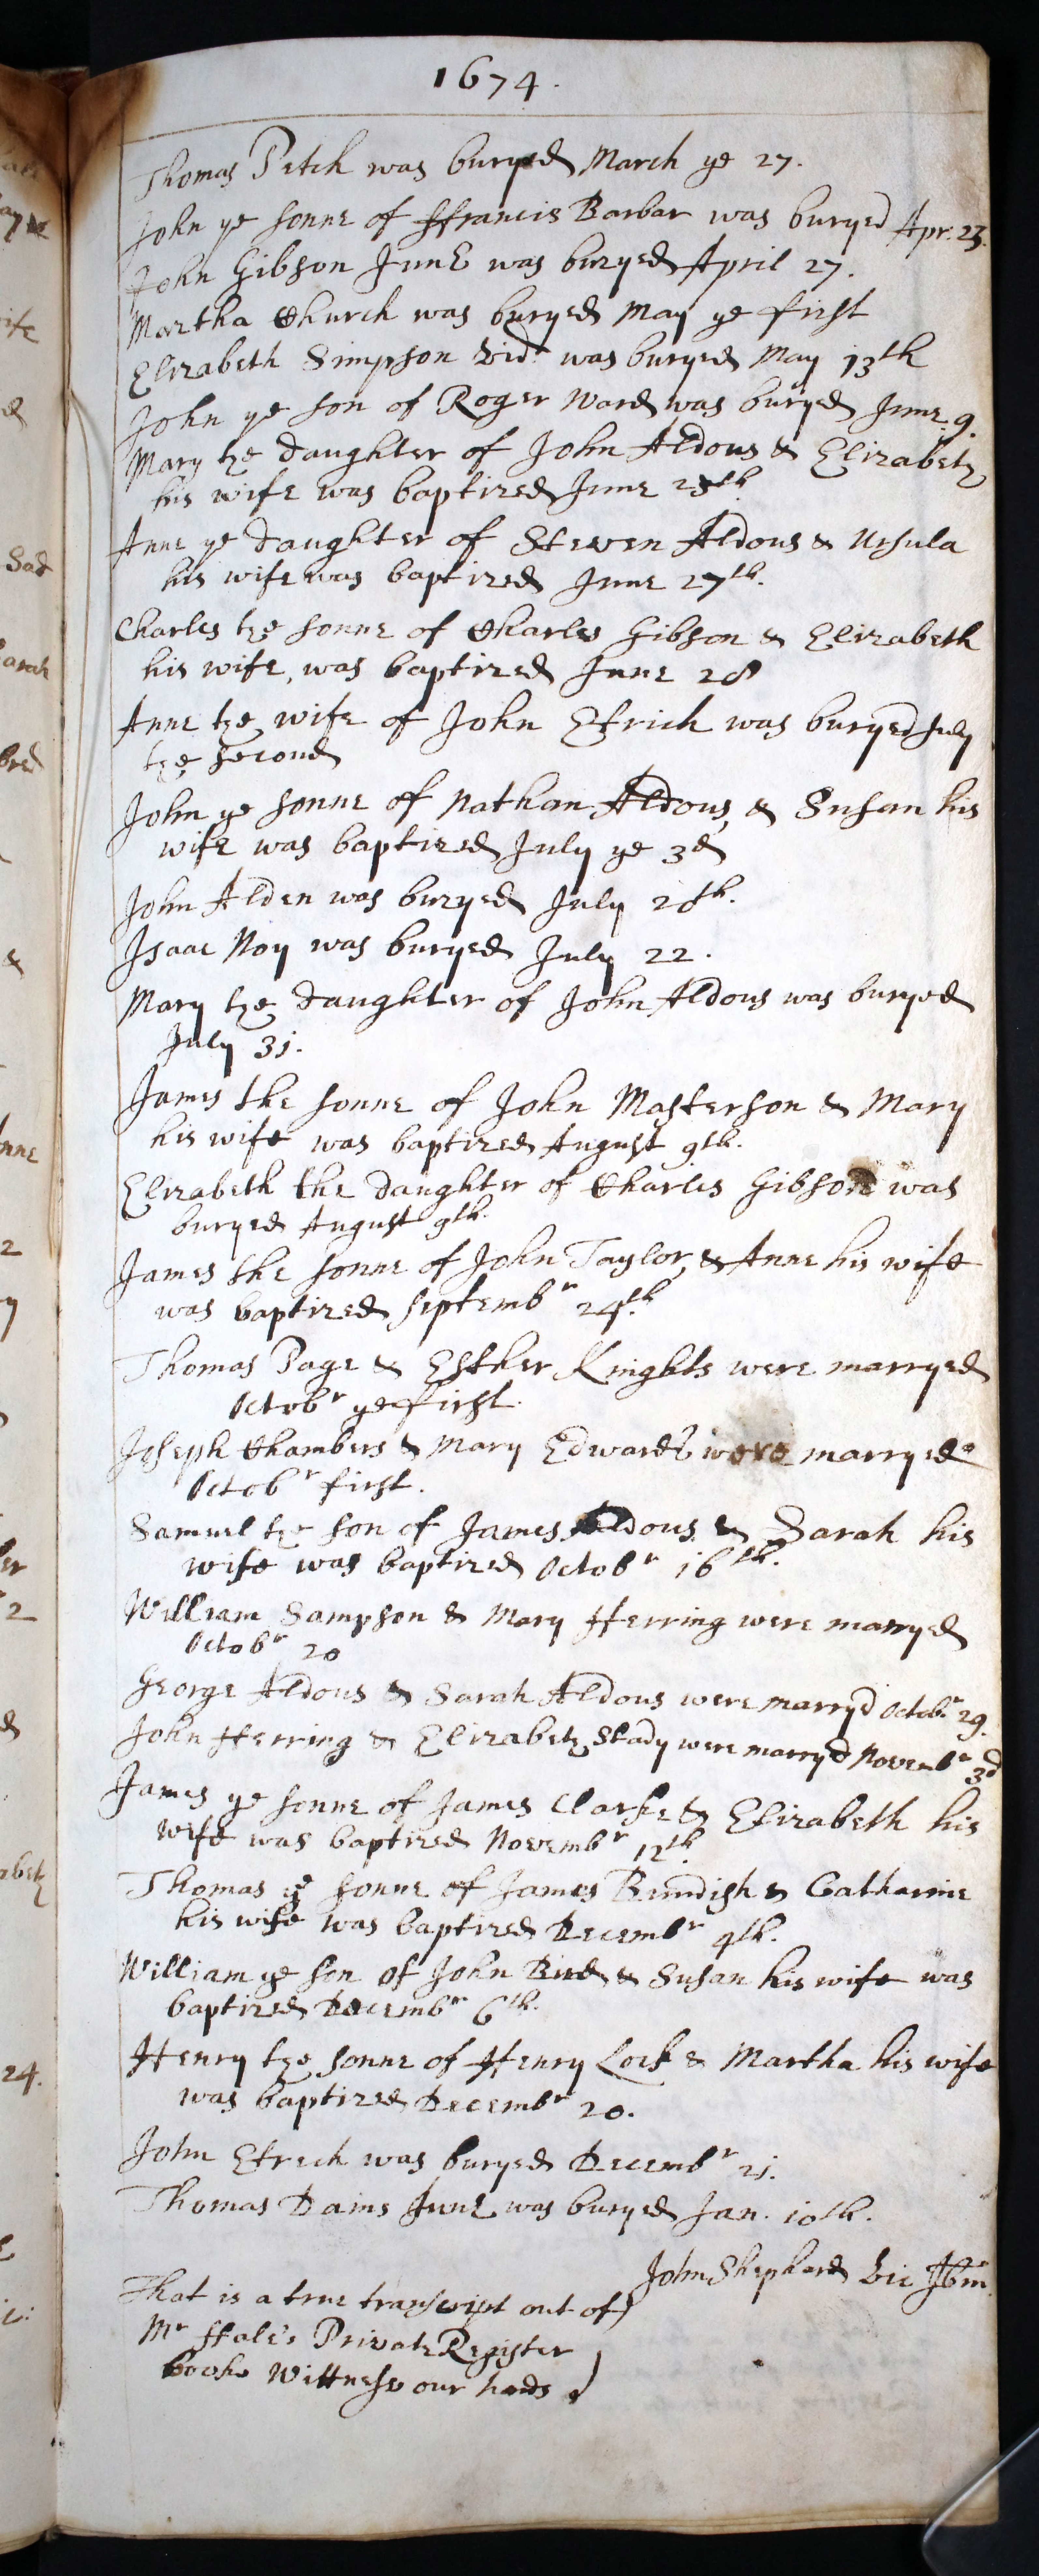 1674.
Thomas Petch was buryed March ye 27.
John ye sonne of ffrancis Barbar was buryed Apr. 23.
John Gibson Junr was buryed April 27.
Martha Church was buryed May ye first
Elizabeth Simpson vid. was buryed May 13th
John ye son of Roger Ward was buryed June 9.
Mary the daughter of John Aldous & Elizabeth
his wife was baptized June 25th
Anne ye daughter of Steven Aldous & Ursula
his wife was baptized June 27th.
Charles the sonne of Charles Gibson & Elizabeth
his wife, was baptized June 28
Anne the wife of John Etrich was buryed July
the second
John ye sonne of Nathan Aldous, & Susan his
wife was baptized July ye 3d
John Alden was buryed July 20th.
Isaac Noy was buryed July 22.
Mary the daughter of John Aldous was buryed
July 31.
James the sonne of John Masterson & Mary
his wife was baptized August 9th.
Elizabeth the daughter of Charles Gibson was
buryed August 9th.
James the sonne of John Taylor, & Anne his wife
was baptized Septembr 24th.
Thomas Page & Esther Knights were marryed
Octobr ye first.
Joseph Chambers & Mary Edwards were marryed
Octobr first.
Samuel the son of James Aldous & Sarah his
wife was baptized Octobr 16th.
William Sampson & Mary Herring were marryed
Octobr 20
George Aldous & Sarah Aldous were marryd Octobr 29.
John Herring & Elizabeth Stady were marryd Novembr 3d
James ye sonne of James Clarke & Elizabeth his
wife was baptized Novembr 12th.
Thomas ye sonne of James Brundish & Catharine
his wife was baptized Decembr 4th.
William ye son of John Bird & Susan his wife was
baptized Decembr 6th.
Henry the sonne of Henry Lock & Martha his wife
was baptized Decembr 20.
John Etrech was buryed Decembr 21.
Thomas Dains Junr was buryed Jan. 10th.
John Shephard Vic Ibm.
That is a true transcript out of
Mr Hale's Private Register
booke Wittnesse our hands